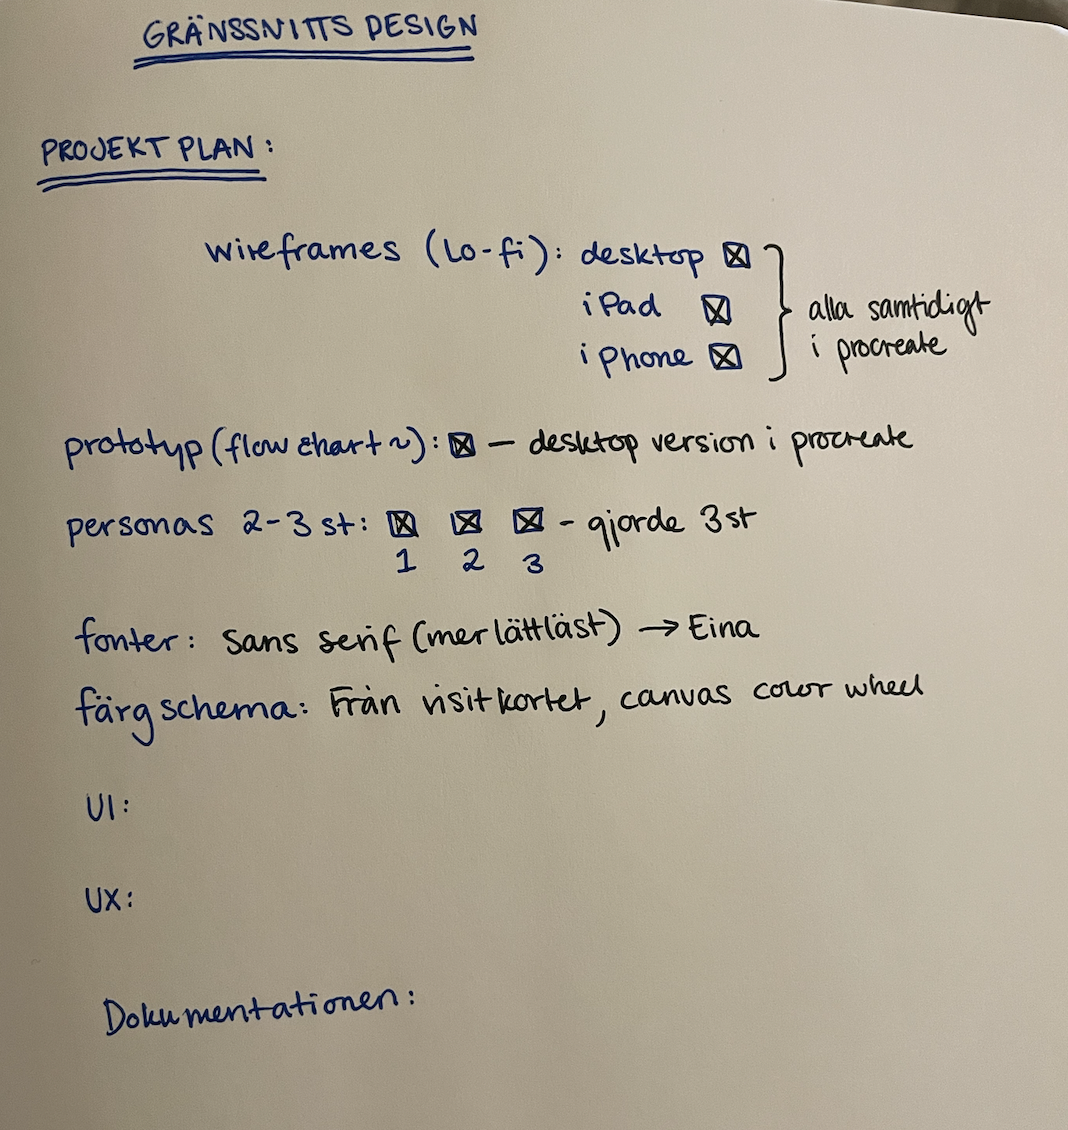 GRÄNSSNITTS DESIGN
PROJEKT PLAN:
wireframes (lo-fi): desktop ☒
iPad ☒
iPhone ☒
alla samtidigt
i procreate
prototyp (flow chart ~): ☒ — desktop version i procreate
personas 2-3 st: ☒ ☒ ☒ - gjorde 3 st
1 2 3
fonter: Sans serif (mer lättläst) → Eina
färg schema: Från visitkortet, canvas color wheel
UI:
UX:
Dokumentationen: